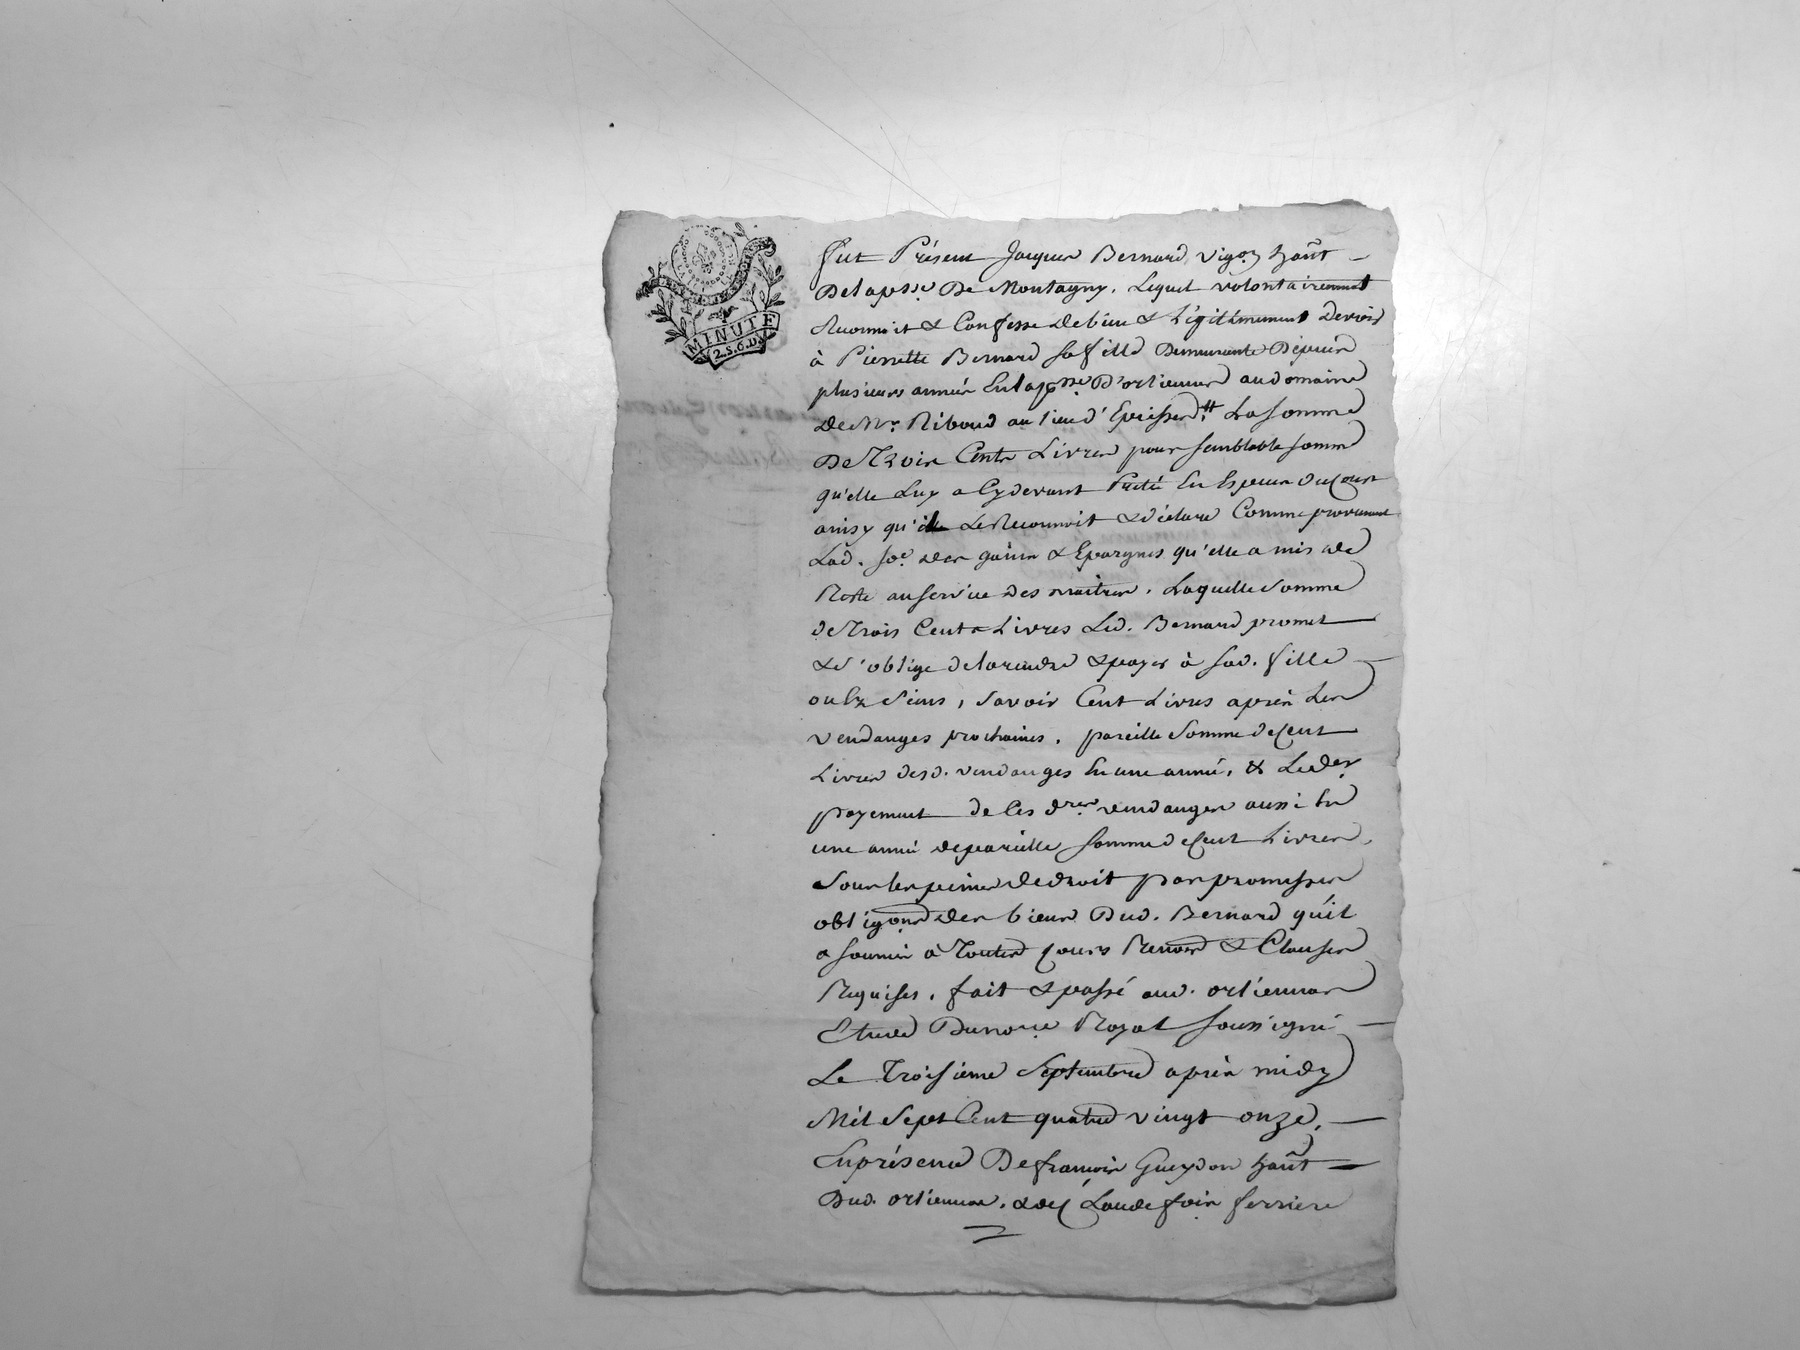 MINUTE
2.S.6.D.
fut Présent Jacques Bernard, vigon habt
De la psse De Montagny, Lequel volontairement
Reconnoit & Confesse debien & Légitimement Devoir
à Pierrette Bernard sa fille Demeurante Depuis
plusieurs années En la psse D'orliennas au domaine
De Mr. Riboud au lieu d' La somme
De Trois Cents Livres pour semblable somme
qu'elle Luy a Cy devant Prêté En Especes Du Cours
ainsy qu'il Le Reconnoit & déclare Comme provenant
Lad. se. des gains & Epargnes qu'elle a mis de
Reste au service des maitres. Laquelle Somme
de Trois Cents Livres Led. Bernard promet
& s'oblige de la rendre & payer à sad. fille
ou Ez Siens, Savoir Cent Livres après Les
vendanges prochaines, pareille Somme de Cent
Livres desd. vendanges En une année, & Le der
payement de Ces dres vendanges aussi En
une année de pareille somme de Cent Livres,
Sous les peines de droit par promesses
obligons des biens Dud. Bernard qu'il
a soumis à Toutes Cours Renons & Clauses
Requises, fait & passé aud. orliennas
Etude Du nore Royal soussigné
Le Troisième Septembre après midy
Mil Sept Cent quatre vingt onze,
En présence De françois Gueydon habt
Dud. orliennas, & de Claude foix ferriere